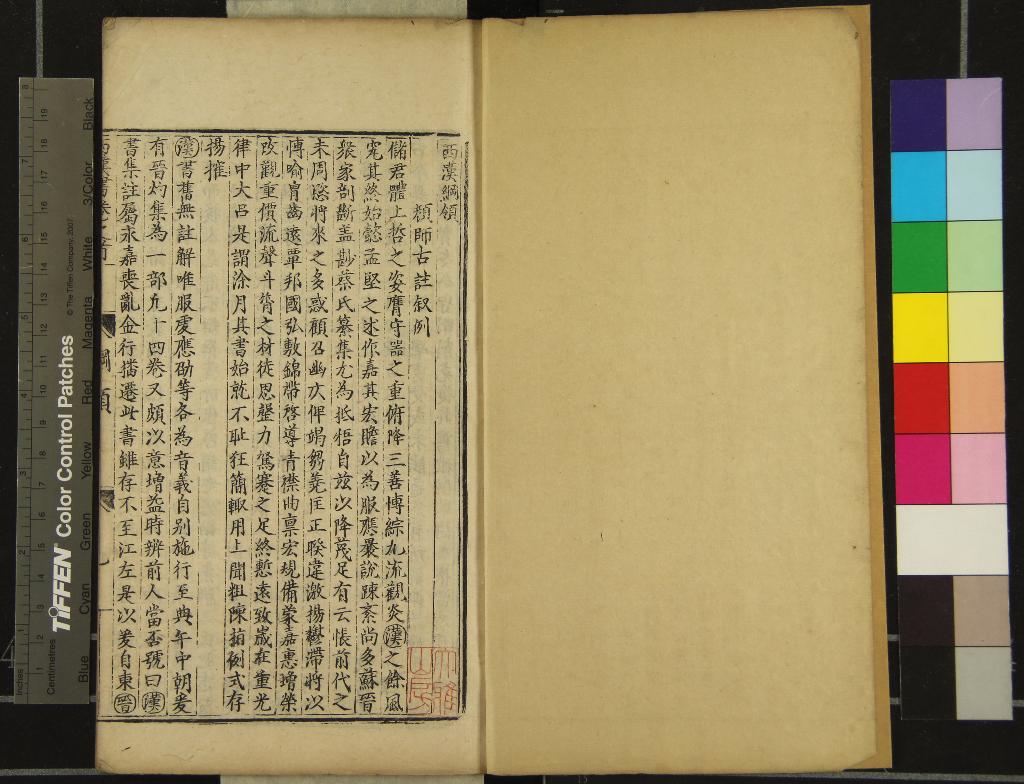 西漢綱領
顏師古註叙例
儲君體上哲之姿膺守器之重俯降三善博綜九流觀炎漢之餘風
究其終始懿孟堅之述作嘉其宏贍以為服應曩說踈紊尚多蘇晉
衆家剖斷蓋尠蔡氏纂集尤為抵牾自兹以降蔑足有云悵前代之
未周愍將來之多惑顧召幽仄俾竭芻蕘匡正睽違激揚鬱滯將以
博喻胄齒遠覃邦國弘敷錦帶啓導青襟曲禀宏規備蒙嘉惠增榮
改觀重價流聲斗筲之材徒思罄力駑蹇之足終慙遠致歲在重光
律中大吕是謂涂月其書始就不耻狂簡輙用上聞粗陳指例式存
揚搉
漢書舊無註解唯服虔應劭等各為音義自别施行至典午中朝爰
有晉灼集為一部凢十四卷又頗以意增益時辨前人當否號曰漢
書集註屬永嘉喪亂金行播遷此書雖存不至江左是以爰自東晉
綱領
Inches
Centimetres
TIFFEN Color Control Patches
© The Tiffen Company, 2007
Blue Cyan Green Yellow Red Magenta White 3/Color Black